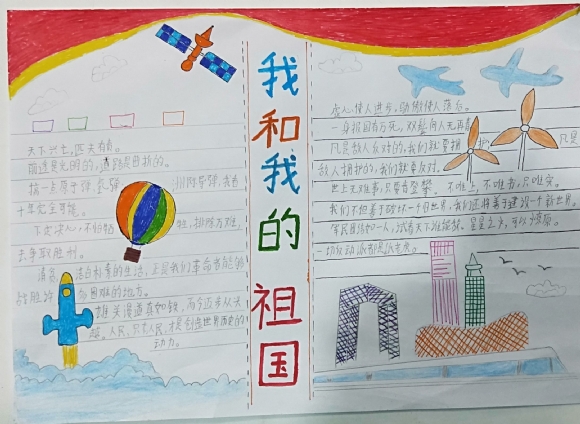 我和我的祖国
天下兴亡,匹夫有责。
前途是光明的,道路是曲折的。
搞一点原子弹,氢弹
十年完全可能。
下定决心,不怕牺牲,排除万难,
去争取胜利。
清贫
战胜许
雄关漫道真如铁,而今迈步从头
越。人民,只有人民,才是创造世界历史的
动力。
虚心使人进步,骄傲使人落后。
一身报国有万死,双鬓向人无再青
凡是敌人反对的,我们就要拥护,凡是
敌人拥护的,我们就要反对。
世上无难事,只要肯登攀。不唯上,不唯书,只唯实。
我们不但善于破坏一个旧世界,我们还将善于建设一个新世界。
军民团结如一人,试看天下谁能敌。星星之火,可以燎原。
一切反动派都是纸老虎。